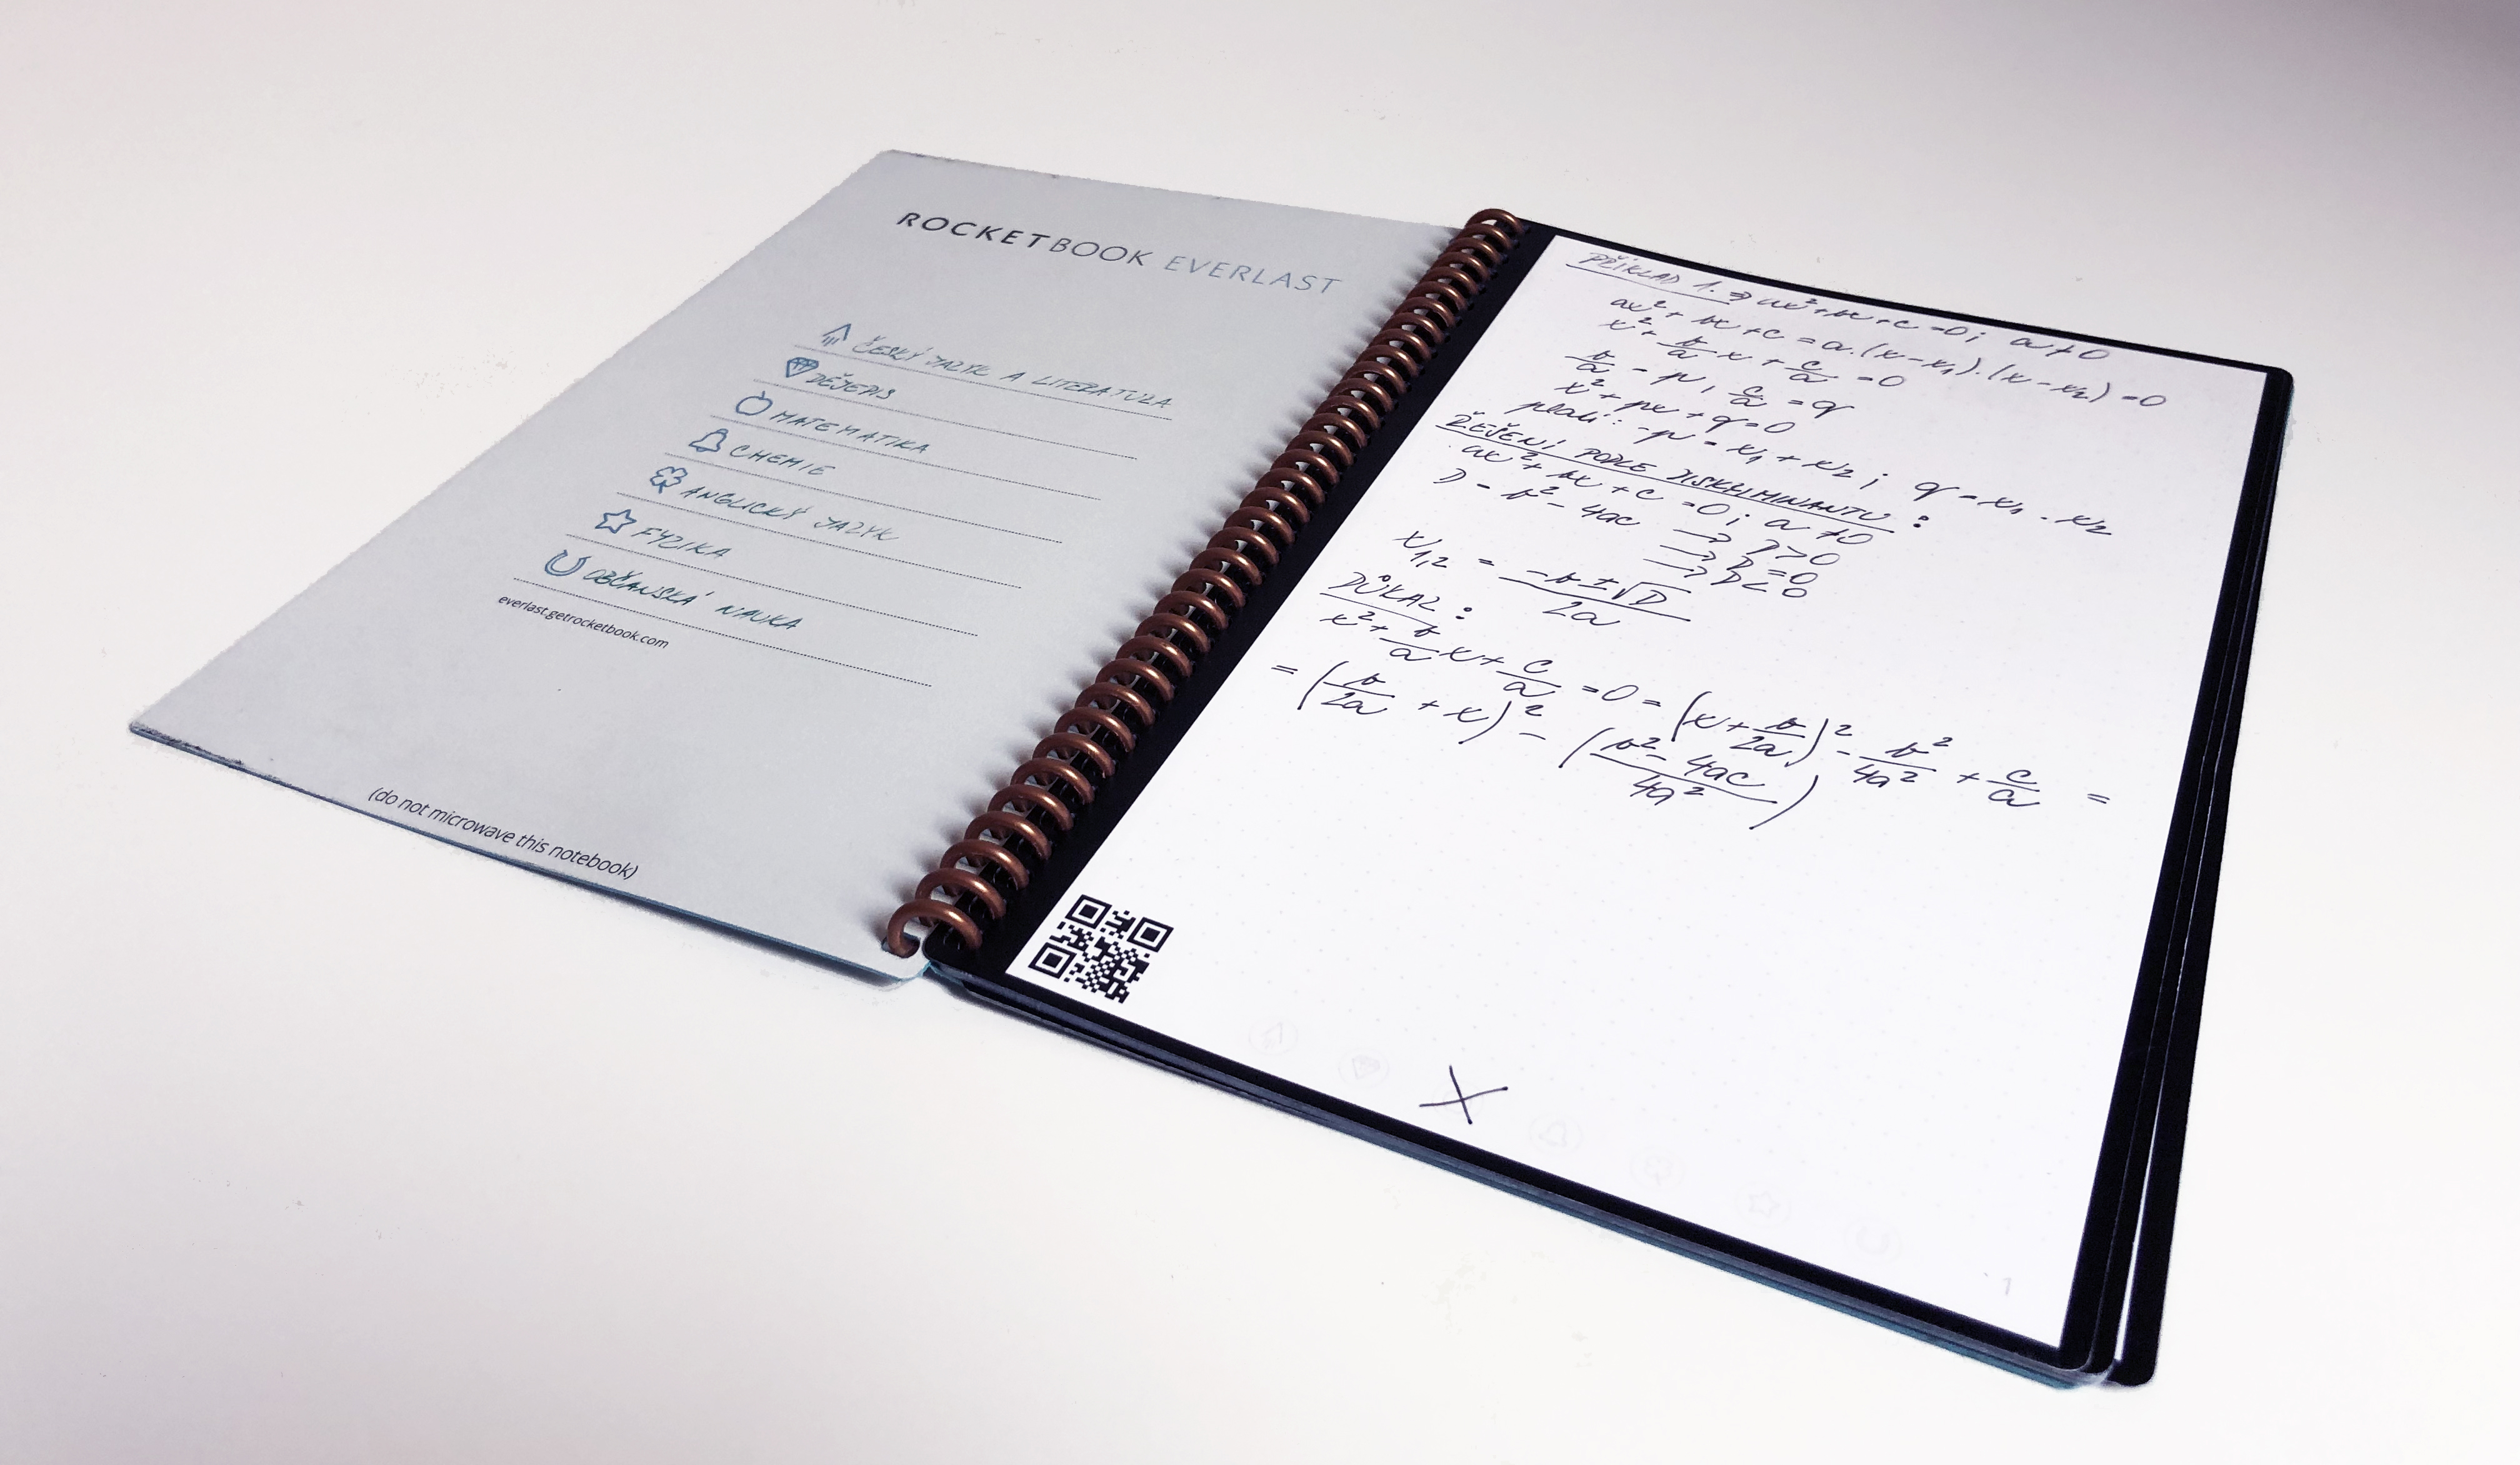 ROCKETBOOK EVERLAST
ČESKÝ JAZYK A LITERATURA
DĚJEPIS
MATEMATIKA
CHEMIE
ANGLICKÝ JAZYK
FYZIKA
OBČANSKÁ NAUKA
everlast.getrocketbook.com
(do not microwave this notebook)
PŘÍKLAD 1. ⇒ ax² + bx + c = 0; a ≠ 0
ax² + bx + c = a.(x - x₁).(x - x₂) = 0
x² + b/a x + c/a = 0
b/a = p, c/a = q
x² + px + q = 0
platí: -p = x₁ + x₂; q = x₁ . x₂
ŘEŠENÍ PODLE DISKRIMINANTU:
ax² + bx + c = 0; a ≠ 0
D = b² - 4ac → D > 0
→ D = 0
→ D < 0
x₁,₂ = (-b ± √D)/2a
DŮKAZ:
x² + b/a x + c/a = 0 = (x + b/2a)² - b²/4a² + c/a =
= (b/2a + x)² - ((b² - 4ac)/4a²)
X
1